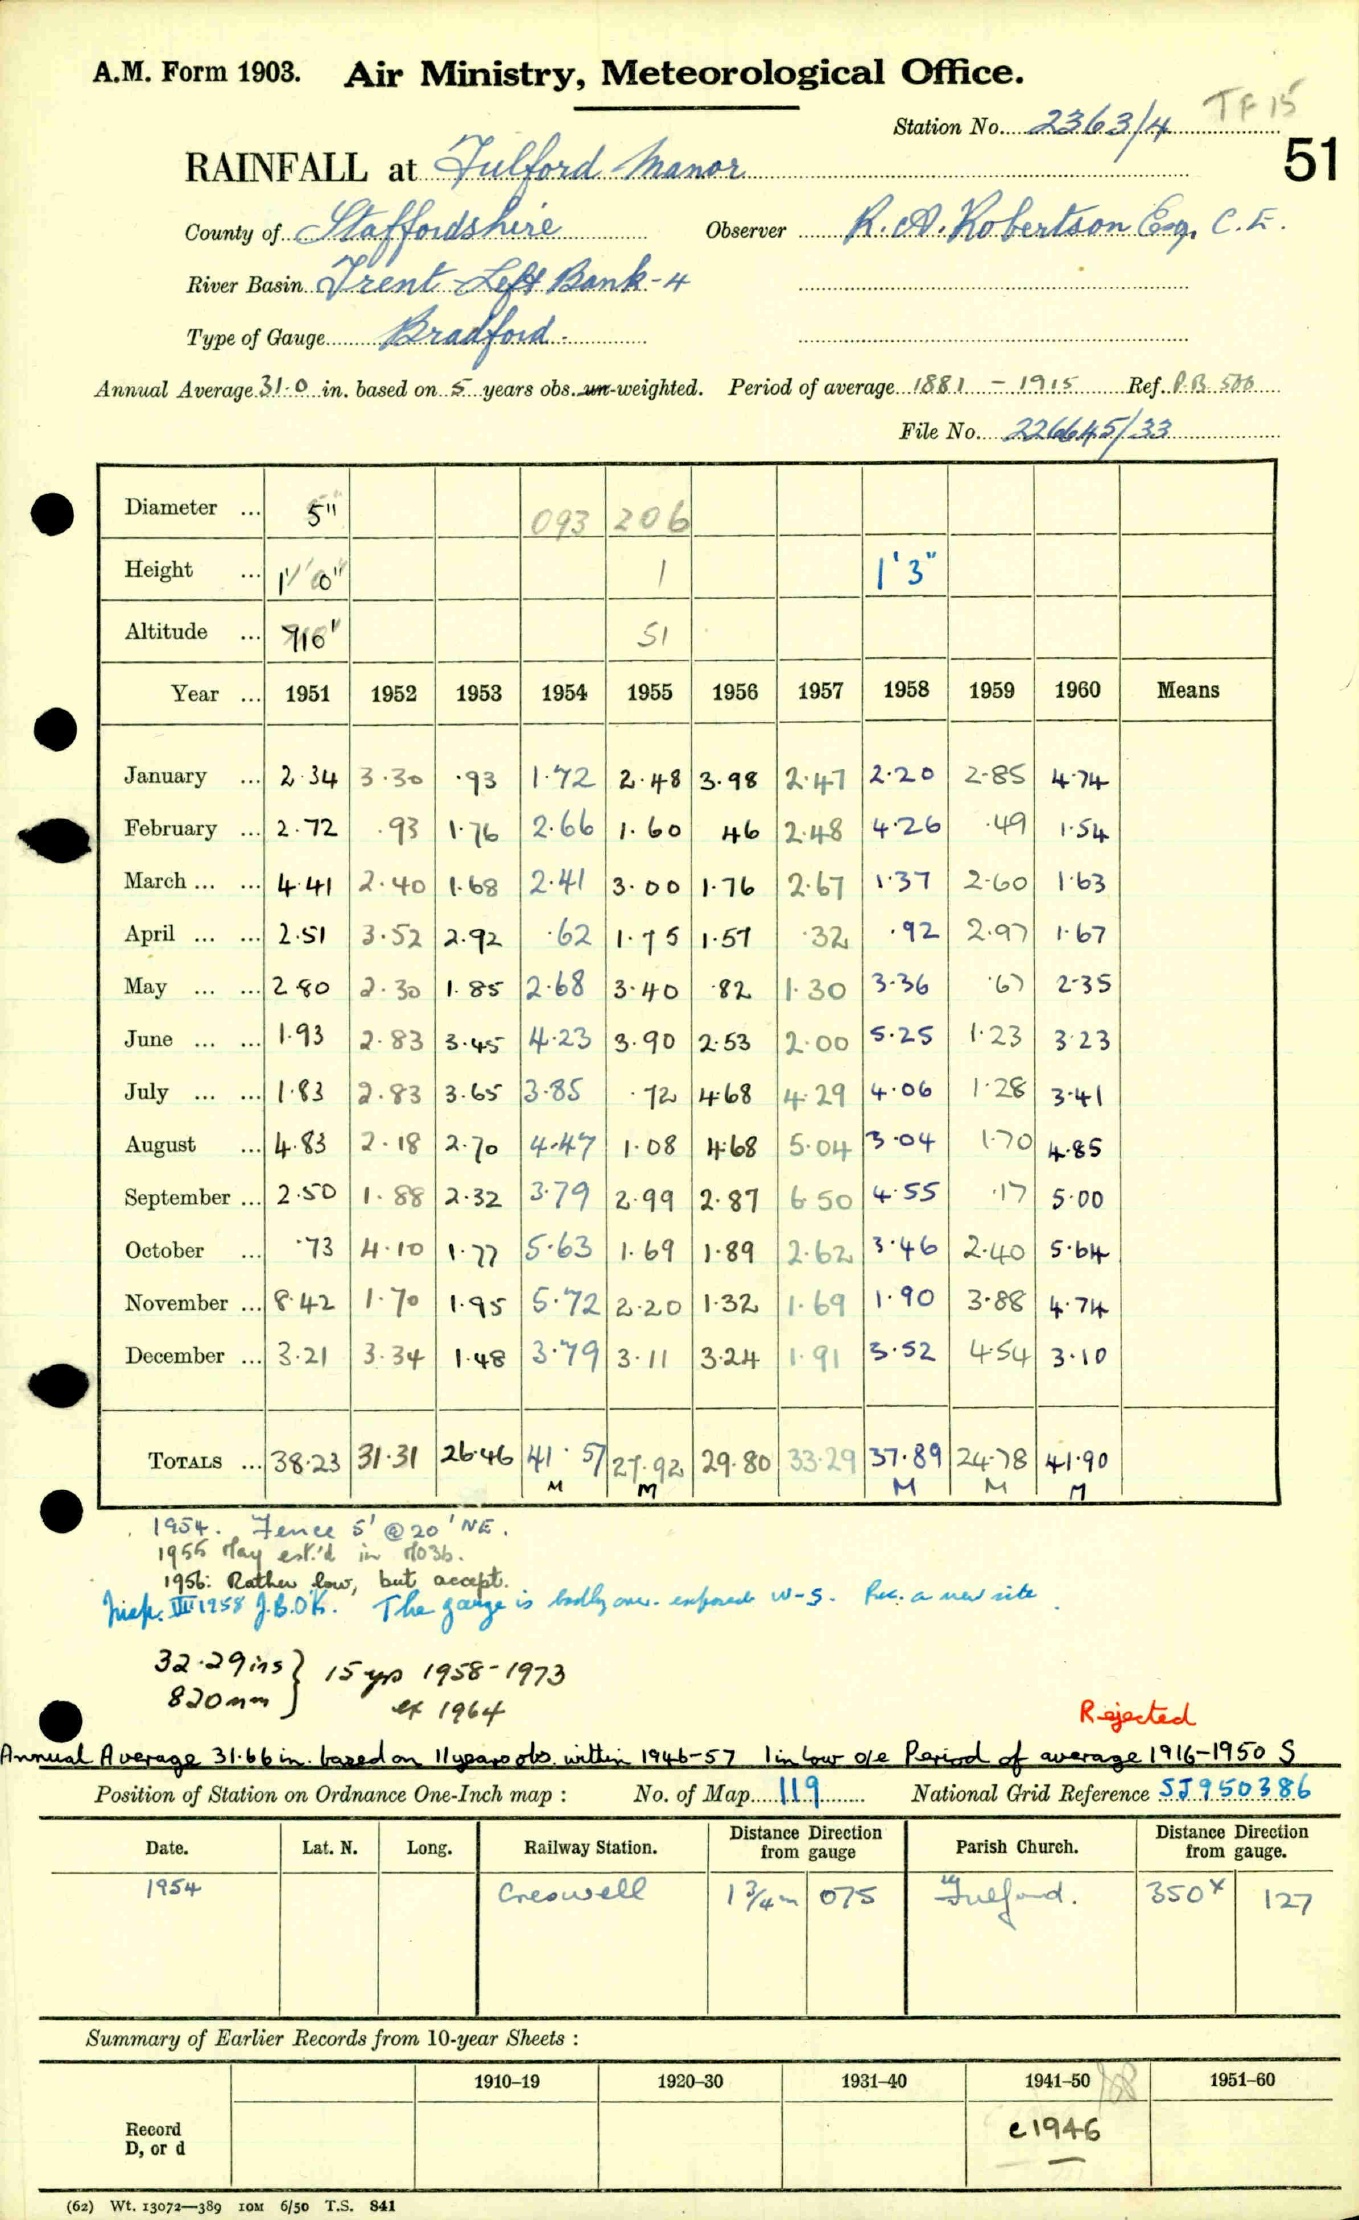 A.M. Form 1903. Air Ministry, Meteorological Office.
TF 15
Station No. 2363/4
51
RAINFALL at Fulford Manor
County of Staffordshire Observer R. A. Robertson Esq. C.E.
River Basin Trent Left Bank - 4
Type of Gauge Bradford.
Annual Average 31.0 in. based on 5 years obs. un-weighted. Period of average 1881 - 1915 Ref.
File No. 226645/33
Diameter ... 5" 093 206
Height ... 1' 0" 1 1' 3"
Altitude ... 710' 51
Year ... 1951 1952 1953 1954 1955 1956 1957 1958 1959 1960 Means
January ... 2.34 3.30 .93 1.72 2.48 3.98 2.47 2.20 2.85 4.74
February ... 2.72 .93 1.76 2.66 1.60 .46 2.48 4.26 .49 1.54
March ... ... 4.41 2.40 1.68 2.41 3.00 1.76 2.67 1.37 2.60 1.63
April ... ... 2.51 3.52 2.92 .62 1.75 1.57 .32 .92 2.97 1.67
May ... ... 2.80 2.30 1.85 2.68 3.40 .82 1.30 3.36 .67 2.35
June ... ... 1.93 2.83 3.45 4.23 3.90 2.53 2.00 5.25 1.23 3.23
July ... ... 1.83 2.83 3.65 3.85 .72 4.68 4.29 4.06 1.28 3.41
August ... 4.83 2.18 2.70 4.47 1.08 4.68 5.04 3.04 1.70 4.85
September ... 2.50 1.88 2.32 3.79 2.99 2.87 6.50 4.55 .17 5.00
October ... .73 4.10 1.77 5.63 1.69 1.89 2.62 3.46 2.40 5.64
November ... 8.42 1.70 1.95 5.72 2.20 1.32 1.69 1.90 3.88 4.74
December ... 3.21 3.34 1.48 3.79 3.11 3.24 1.91 3.52 4.54 3.10
TOTALS ... 38.23 31.31 26.46 41.57 27.92 29.80 33.29 37.89 24.78 41.90
M M M M M
1954. Fence 5' @ 20' NE.
1955 May est.'d in MO3b.
1956: Rather low, but accept.
Insp. VIII 1958 J.B.O'K. The gauge is badly over-exposed W-S. Rec. a new site.
32.29 ins } 15 yrs 1958-1973
820 mm ex 1964
Rejected
Annual Average 31.66 in. based on 11 years obs. within 1946-57 1 in low o/e Period of average 1916-1950 S
Position of Station on Ordnance One-Inch map : No. of Map 119 National Grid Reference SJ950386
Date. Lat. N. Long. Railway Station. Distance from Direction gauge Parish Church. Distance from Direction gauge.
1954 Creswell 1 3/4 m 075 Fulford. 350x 127
Summary of Earlier Records from 10-year Sheets :
1910–19 1920–30 1931–40 1941–50 1951–60
Record
D, or d
c1946
(62) Wt. 13072—389 10M 6/50 T.S. 841